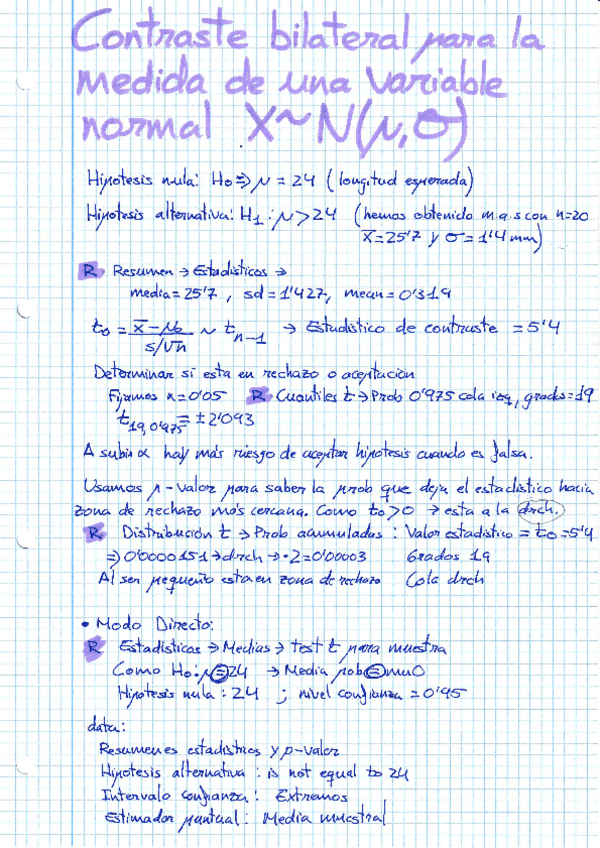 Contraste bilateral para la
medida de una variable
normal X~N(μ,σ)
Hipotesis nula: H₀ ⇒ μ = 24 (longitud esperada)
Hipotesis alternativa: H₁: μ > 24 (hemos obtenido m.a.s con n=20
x̄ = 25'7 y σ = 1'4 mm)
R Resumen → Estadisticos →
media = 25'7, sd = 1'427, mean = 0'319
t₀ = (x̄ − μ₀)/(s/√n) ~ t n−1 → Estadistico de contraste = 5'4
Determinar si esta en rechazo o aceptación
Fijamos α = 0'05 R Cuantiles t → Prob 0'975 cola izq, grados = 19
t 19, 0'975 = ±2'093
A subir α hay más riesgo de aceptar hipotesis cuando es falsa.
Usamos p-valor para saber la prob que deja el estadistico hacia
zona de rechazo más cercana. Como t₀ > 0 → esta a la drch.
R Distribución t → Prob acumuladas: Valor estadistico = t₀ = 5'4
⇒ 0'0000151 → drch → ·2 = 0'00003 Grados 19
Al ser pequeño esta en zona de rechazo Cola drch
• Modo Directo:
R Estadisticos → Medias → test t para muestra
Como H₀: μ = 24 → Media pob = mu0
Hipotesis nula: 24 ; nivel confianza = 0'95
data:
Resumenes estadistricos y p-valor
Hipotesis alternativa: is not equal to 24
Intervalo confianza: Extremos
Estimador puntual: Media muestral